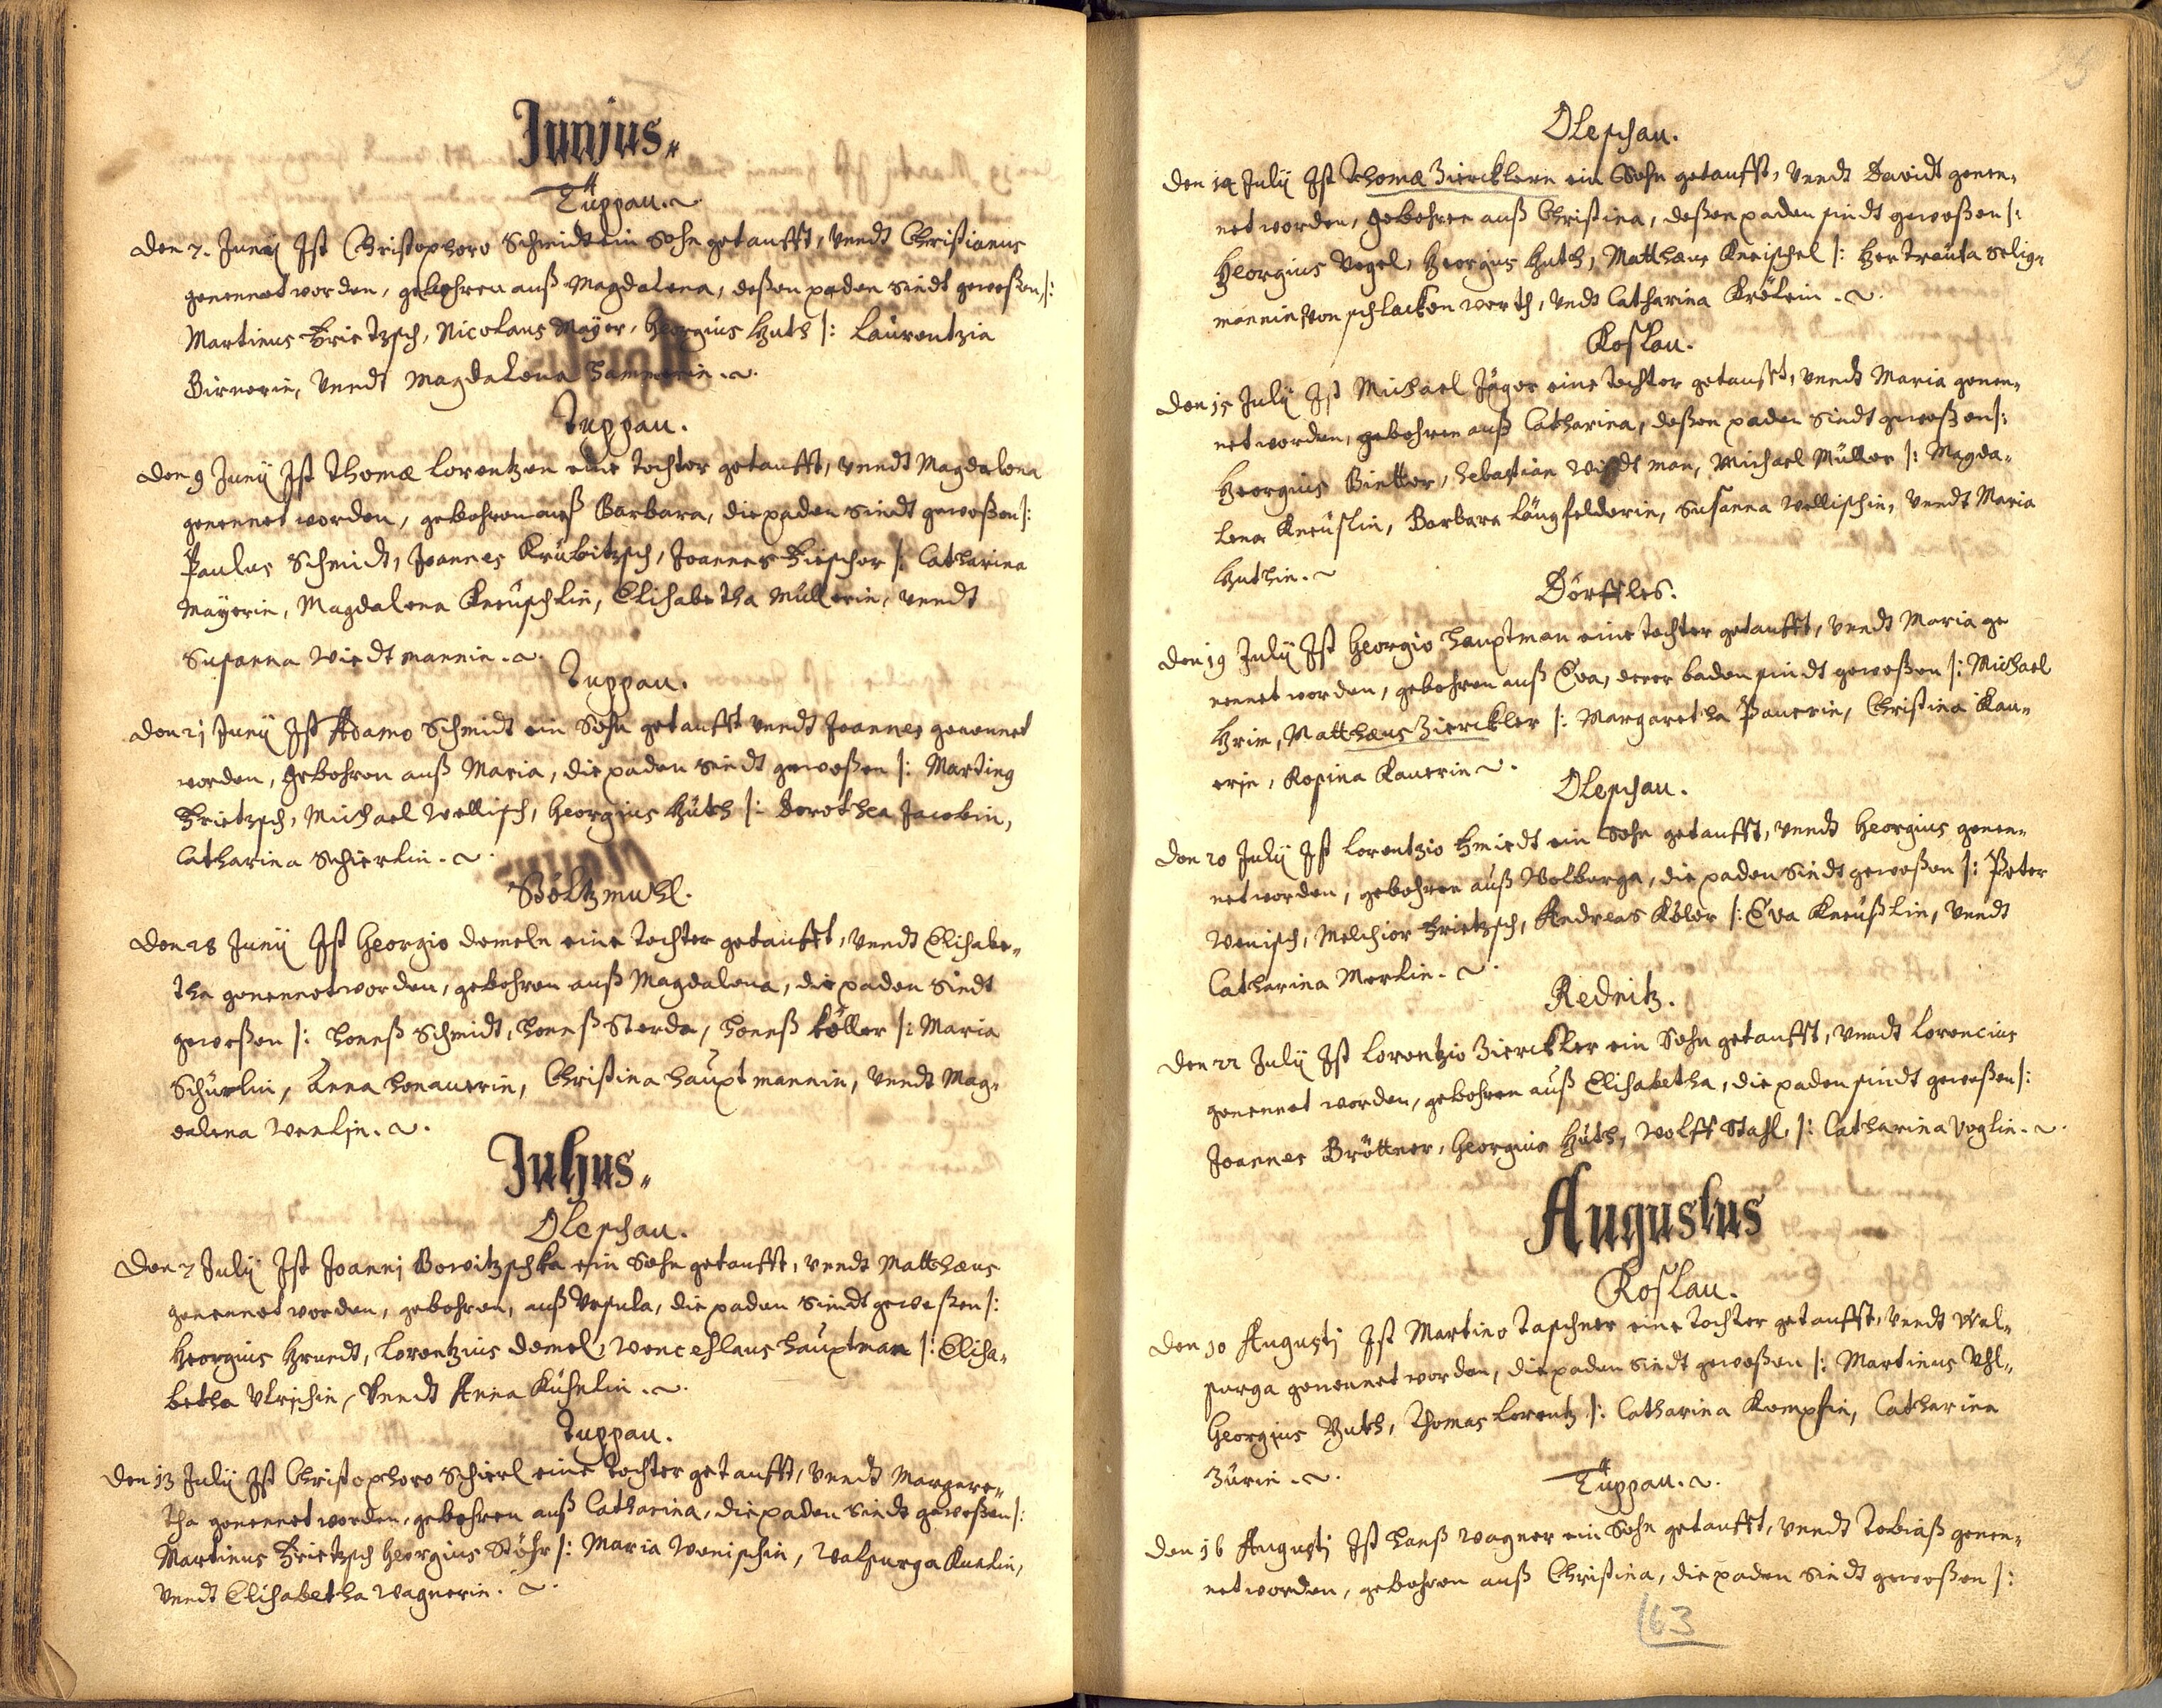 Junius.
Tüppau.
Den 7. Junÿ Ist Christophoro Schmidt ein Sohn getaufft, Vnndt Christianus
genennet worden, gebohren auß Magdalena, deßen paden sindt geweßen /:
Martinus Frietzsch, Nicolaus Mayer, Georgius Huth /: Laurentzia
Birnerin, Vnndt Magdalena Hammerin.
Tuppau.
Den 9 Junÿ Ist Thomæ Lorentzen eine tochter getaufft, Vnndt Magdalena
genennet worden, gebohren auß Barbara, die paden sindt geweßen /:
Paulus Schmidt, Joannes Krübitzsch, Joannes Fischer /: Catharina
Mayerin, Magdalena Kneuschlin, Elisabetha Müllerin, Vnndt
Susanna Wiedtmannin.
Tuppau.
Den 21 Junÿ Ist Adamo Schmidt ein Sohn getaufft Vnndt Joannes genennet
worden, gebohren auß Maria, die paden sindt geweßen /: Marting
Frietzsch, Michael Wellisch, Georgius Hüth /: Dorothea Jacobin,
Catharina Schierlin.
Böltzmuhl.
Den 28 Junÿ Ist Georgio Demeln eine tochter getaufft, Vnndt Elisabe=
tha genennet worden, gebohren auß Magdalena, die paden sindt
geweßen /: Hannß Schmidt, Hannß Storda, Hannß Köller /: Maria
Schürlin, Anna Honauerin, Christina Hauptmannin, Vnndt Mag=
dalena Wenlin.
Julius.
Oleschau.
Den 7 Julÿ Ist Joannj Borvitzschka ein Sohn getaufft, Vnndt Matthæus
genennet worden, gebohren, auß Vrsula, die paden sindt geweßen /:
Georgius Hrundt, Lorentzius Demel, Wenceslaus Hauptman /: Elisa=
betha Vlrichin, Vnndt Anna Kühnlin.
Tuppau.
Den 13 Julÿ Ist Christophoro Schierl eine tochter getaufft, Vnndt Margare=
tha genennet worden, gebohren auß Catharina, die paden sindt geweßen /:
Martinus Frietzsch Georgius Stöhr /: Maria Wenischin, Walpurga Kuelin,
Vnndt Elisabetha Wagnerin.
Oleschau.
Den 14 Julÿ Ist Thomæ Ziercklern ein Sohn getaufft, Vnndt Davidt genen=
net worden, gebohren auß Christina, deßen paden sindt geweßen /:
Georgius Vogel, Georgius Huth, Matthæus Kneischel /: Hertrauta Selig=
mannin von schlackenwerth, Vndt Catharina Krölein.
Koslau.
Den 15 Julÿ Ist Michael Jäger eine tochter getaufft, Vnndt Maria genen=
net worden, gebohren auß Catharina, deßen paden sindt geweßen /:
Georgius Bietter, Sebastian Widtman, Michael Müller /: Magda=
lena Kneuslin, Barbara Längfelderin, Susanna Wellischin, Vnndt Maria
Huthin.
Dörffles.
Den 19 Julÿ Ist Georgio Hauptman eine tochter getaufft, Vnndt Maria ge
nennet worden, gebohren auß Eva, derer baden sindt geweßen /: Michael
Hrim, Matthæus Zierckler /: Margaretha Pauerin, Christina Kau=
erin, Rosina Kauerin.
Oleschau.
Den 20 Julÿ Ist Lorentzio Schmiedt ein Sohn getaufft, Vnndt Georgius genen=
net worden, gebohren auß Wolburga, die paden sindt geweßen /: Peter
Wenisch, Melchior Frietzsch, Andreas Köler /: Eva Kneußlin, Vnndt
Catharina Merlin.
Rednitz.
Den 22 Julÿ Ist Lorentzio Zierckler ein Sohn getaufft, Vnndt Lorencius
genennet worden, gebohren auß Elisabetha, die paden sindt geweßen /:
Joannes Bröttner, Georgius Hüth, Wolff Stahl, /: Catharina Voglin.
Augustus
Koslau.
Den 10 Augustj Ist Martino Taschner eine tochter getaufft, Vnndt Wal=
purga genennet worden, die paden sindt geweßen /: Martinus Vhl=
Georgius Huth, Thomas Lorentz /: Catharina Kempfin, Catharina
Zürin.
Tüppau.
Den 16 Augustj Ist Hanß Wagner ein Sohn getaufft, Vnndt Tobiaß genen=
net worden, gebohren auß Christina, die paden sindt geweßen /:
163